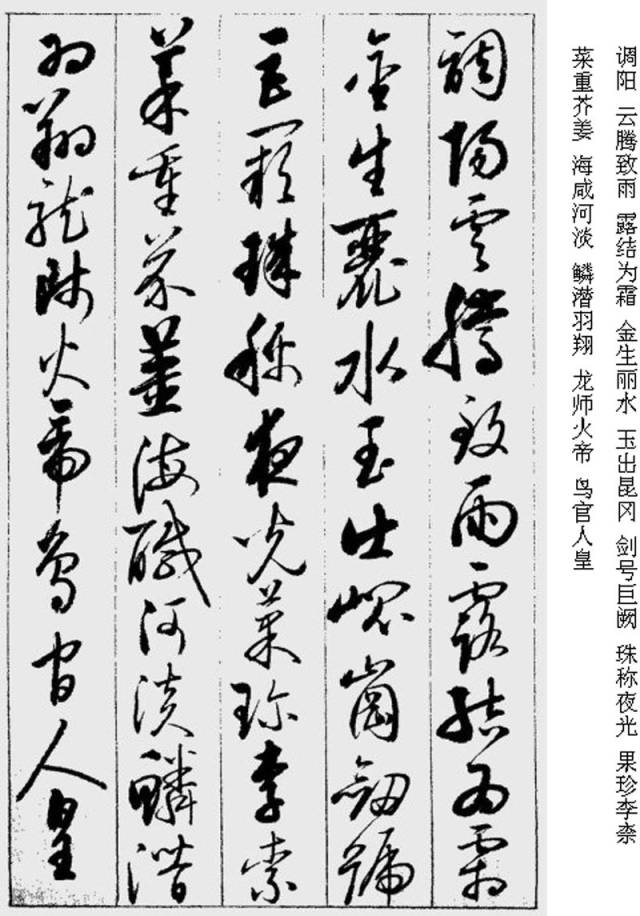 调阳 云腾致雨 露结为霜 金生丽水 玉出昆冈 剑号巨阙 珠称夜光 果珍李柰
菜重芥姜 海咸河淡 鳞潜羽翔 龙师火帝 鸟官人皇
調陽雲騰致雨露結為霜
金生麗水玉出崐崗劍號
巨闕珠稱夜光菓珍李柰
菜重芥薑海醎河淡鱗潛
羽翔龍師火帝鳥官人皇